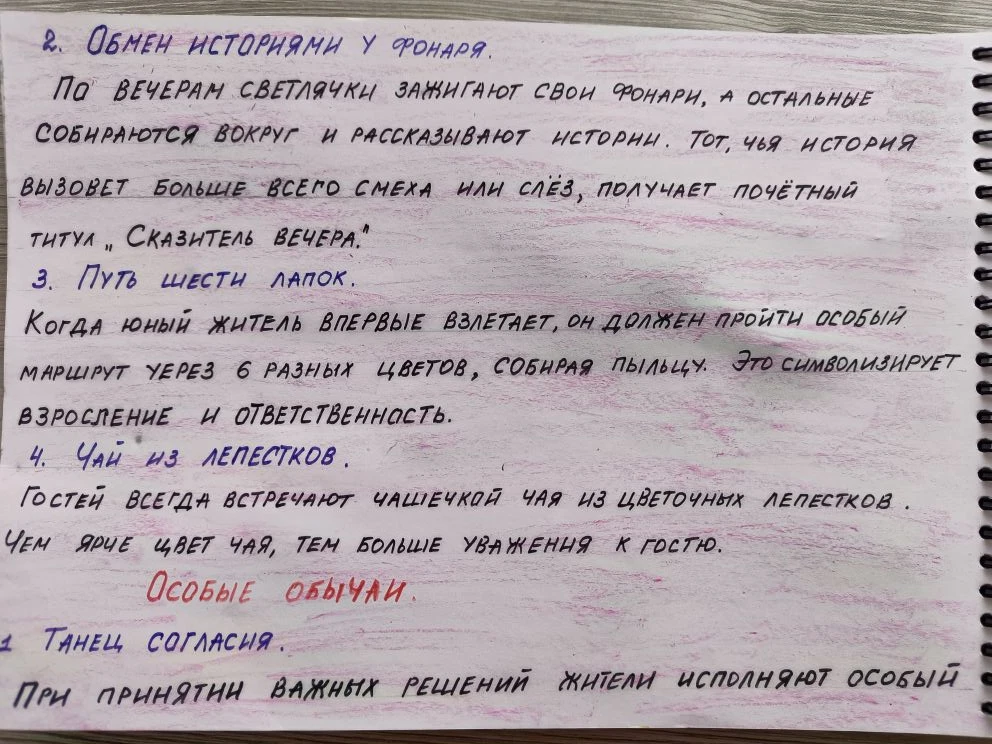 2. Обмен историями у фонаря.
По вечерам светлячки зажигают свои фонари, а остальные
собираются вокруг и рассказывают истории. Тот, чья история
вызовет больше всего смеха или слёз, получает почётный
титул „Сказитель вечера."
3. Путь шести лапок.
Когда юный житель впервые взлетает, он должен пройти особый
маршрут через 6 разных цветов, собирая пыльцу. Это символизирует
взросление и ответственность.
4. Чай из лепестков.
Гостей всегда встречают чашечкой чая из цветочных лепестков.
Чем ярче цвет чая, тем больше уважения к гостю.
Особые обычаи.
1 Танец согласия.
При принятии важных решений жители исполняют особый